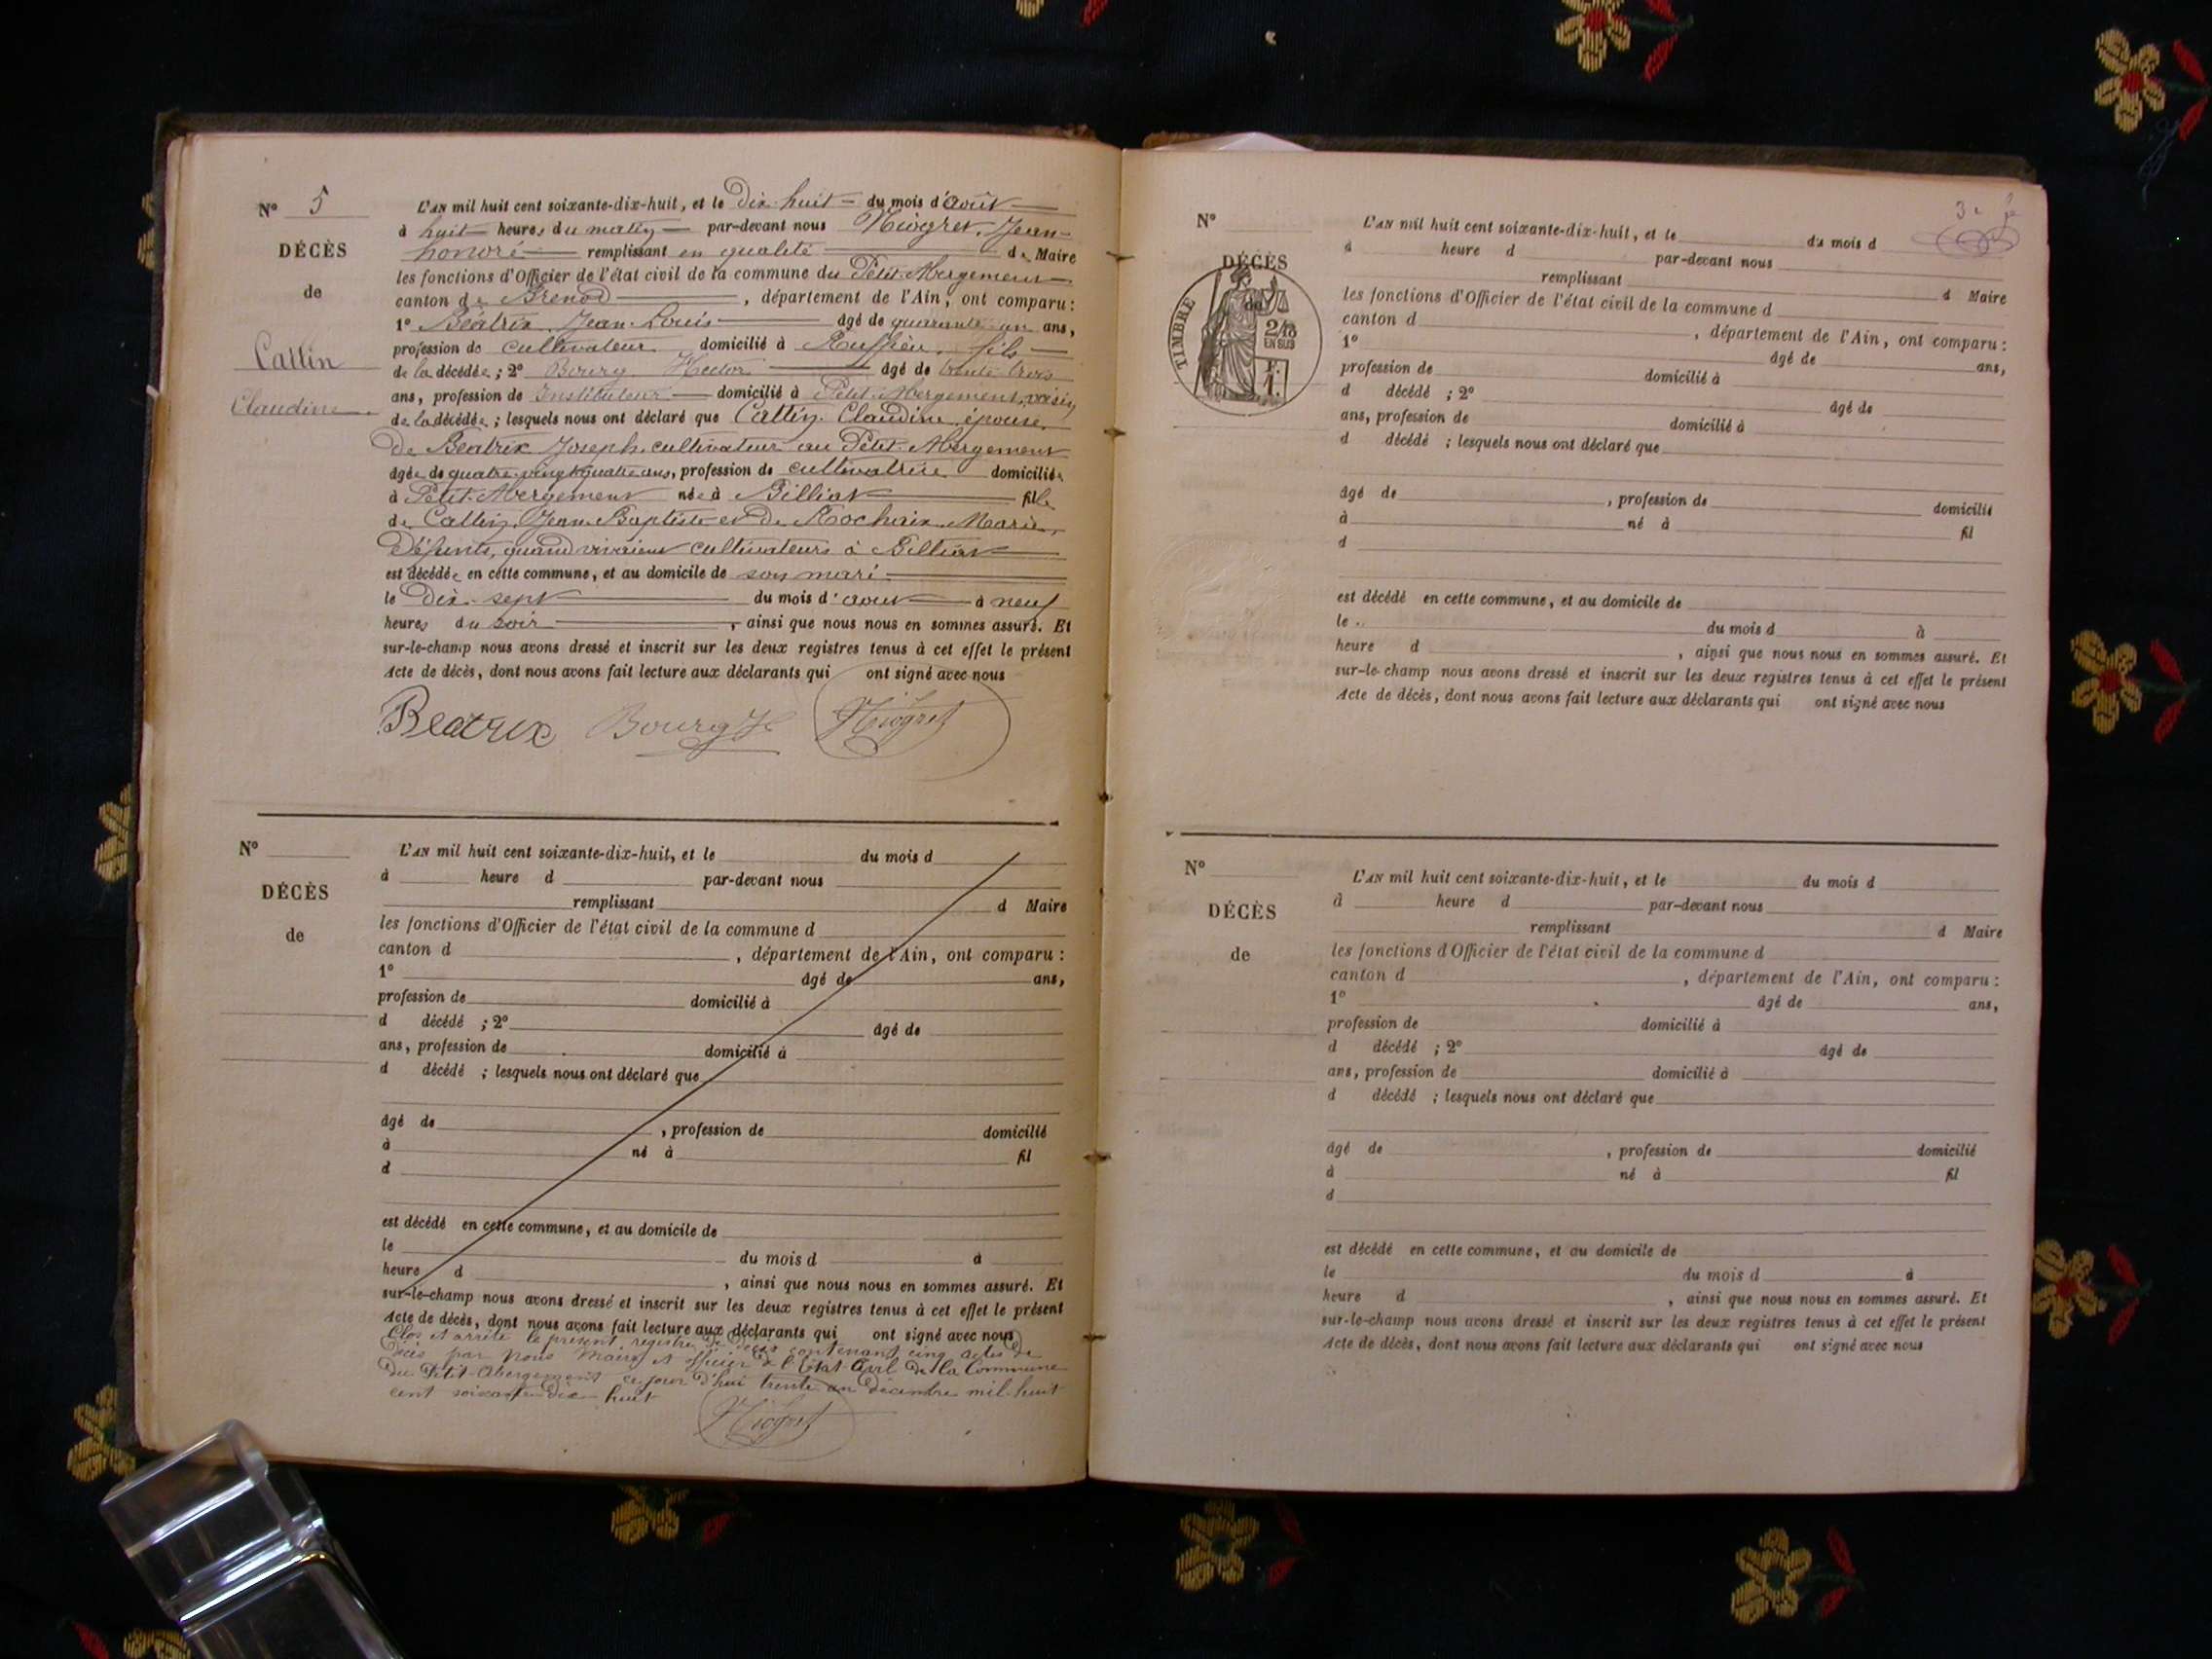 N° 5
DÉCÈS
de
Cattin
Claudine
L'AN mil huit cent soixante-dix-huit, et le Dix-huit du mois d'août
à huit heures du matin par-devant nous Niogret, Jean-
honoré remplissant en qualité de Maire
les fonctions d'Officier de l'état civil de la commune du Petit-Abergement
canton de Brenod, département de l'Ain, ont comparu :
1° Béatrix, Jean-Louis âgé de quarante un ans,
profession de cultivateur domicilié à Ruffieu, fils
de la décédée ; 2° Bourg Hector âgé de trente trois
ans, profession de Instituteur domicilié à Petit-Abergement, voisin
de la décédée ; lesquels nous ont déclaré que Cattin Claudine, épouse
de Béatrix Joseph, cultivateur au Petit-Abergement
âgée de quatre-vingt quatre ans, profession de cultivatrice domiciliée
à Petit-Abergement née à Billiat fille
de Cattin, Jean-Baptiste et de Rochaix Marie,
Défunts, quand vivaient cultivateurs à Billiat
est décédée en cette commune, et au domicile de son mari
le Dix-sept du mois d'aout à neuf
heures du soir, ainsi que nous nous en sommes assuré. Et
sur-le-champ nous avons dressé et inscrit sur les deux registres tenus à cet effet le présent
Acte de décès, dont nous avons fait lecture aux déclarants qui ont signé avec nous
Beatrix Bourg H Niogret
N°
DÉCÈS
de
L'AN mil huit cent soixante-dix-huit, et le du mois d
à heure d par-devant nous
remplissant d Maire
les fonctions d'Officier de l'état civil de la commune d
canton d , département de l'Ain, ont comparu :
1° âgé de ans,
profession de domicilié à
d décédé ; 2° âgé de
ans, profession de domicilié à
d décédé ; lesquels nous ont déclaré que
âgé de , profession de domicilié
à né à fil
d
est décédé en cette commune, et au domicile de
le du mois d à
heure d , ainsi que nous nous en sommes assuré. Et
sur-le-champ nous avons dressé et inscrit sur les deux registres tenus à cet effet le présent
Acte de décès, dont nous avons fait lecture aux déclarants qui ont signé avec nous
Clos et arrêté le présent registre de Décès contenant cinq actes de
Décès par Nous Maire et officier de l'Etat Civil de la Commune
du Petit-Abergement ce jour d'hui trente un décembre mil-huit
cent soixante-dix-huit
Niogret
3e
N°
DÉCÈS
de
TIMBRE
2/10
EN SUS
F.
1.
L'AN mil huit cent soixante-dix-huit, et le du mois d
à heure d par-devant nous
remplissant d Maire
les fonctions d'Officier de l'état civil de la commune d
canton d , département de l'Ain, ont comparu :
1° âgé de ans,
profession de domicilié à
d décédé ; 2° âgé de
ans, profession de domicilié à
d décédé ; lesquels nous ont déclaré que
âgé de , profession de domicilié
à né à fil
d
est décédé en cette commune, et au domicile de
le du mois d à
heure d , ainsi que nous nous en sommes assuré. Et
sur-le-champ nous avons dressé et inscrit sur les deux registres tenus à cet effet le présent
Acte de décès, dont nous avons fait lecture aux déclarants qui ont signé avec nous
N°
DÉCÈS
de
L'AN mil huit cent soixante-dix-huit, et le du mois d
à heure d par-devant nous
remplissant d Maire
les fonctions d'Officier de l'état civil de la commune d
canton d , département de l'Ain, ont comparu :
1° âgé de ans,
profession de domicilié à
d décédé ; 2° âgé de
ans, profession de domicilié à
d décédé ; lesquels nous ont déclaré que
âgé de , profession de domicilié
à né à fil
d
est décédé en cette commune, et au domicile de
le du mois d à
heure d , ainsi que nous nous en sommes assuré. Et
sur-le-champ nous avons dressé et inscrit sur les deux registres tenus à cet effet le présent
Acte de décès, dont nous avons fait lecture aux déclarants qui ont signé avec nous